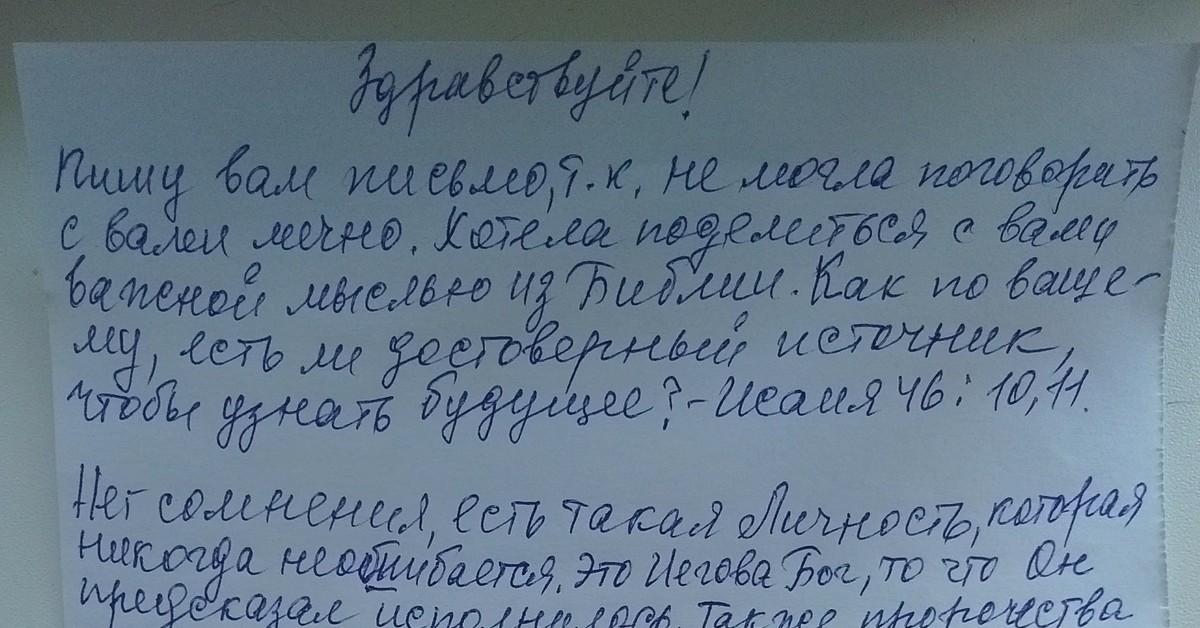 Здравствуйте!
Пишу вам письмо, т.к. не могла поговорить
с вами лично. Хотела поделиться с вами
важной мыслью из Библии. Как по ваше-
му, есть ли достоверный источник,
чтобы узнать будущее? - Исаия 46:10,11.
Нет сомнения, есть такая Личность, которая
никогда неошибается. Это Иегова Бог, то что Он
предсказал исполнилось. Также пророчества